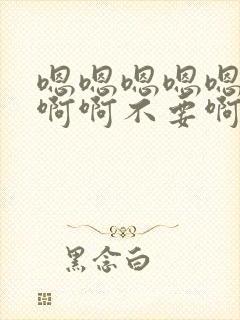 嗯嗯嗯嗯嗯
啊啊不要啊
黑念白